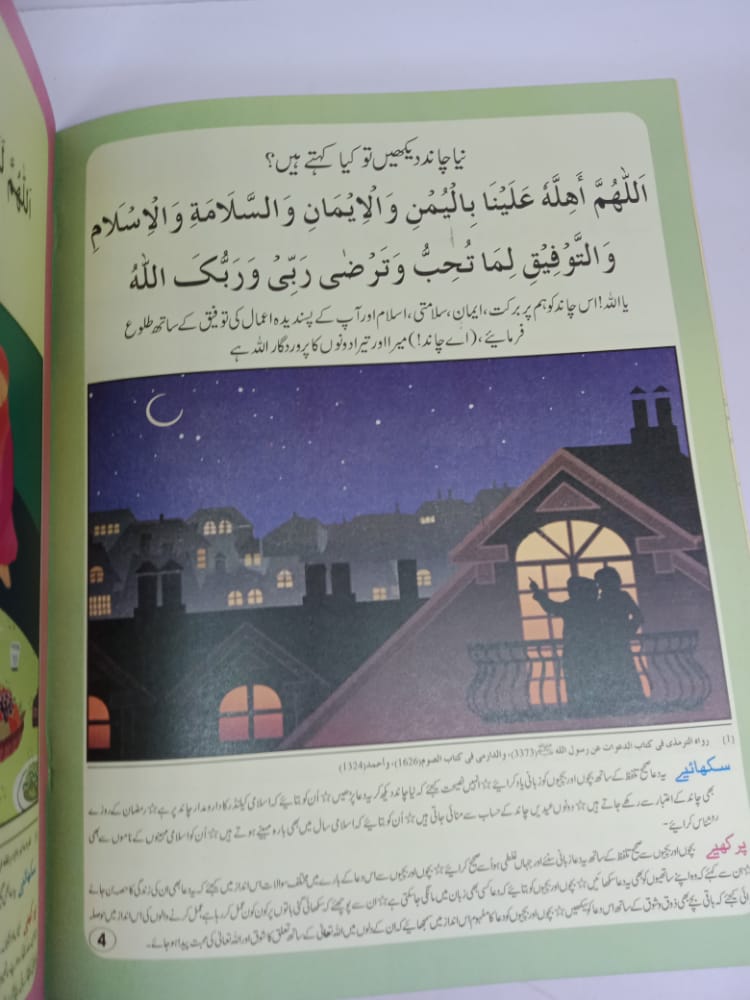 نیا چاند دیکھیں تو کیا کہتے ہیں؟
اَللّٰهُمَّ أَهِلَّهٗ عَلَيْنَا بِالْيُمْنِ وَالْاِيْمَانِ وَالسَّلَامَةِ وَالْاِسْلَامِ
وَالتَّوْفِيْقِ لِمَا تُحِبُّ وَتَرْضٰى رَبِّىْ وَرَبُّكَ اللّٰهُ
یا اللہ! اس چاند کو ہم پر برکت، ایمان، سلامتی، اسلام اور آپ کے پسندیدہ اعمال کی توفیق کے ساتھ طلوع
فرمائیے، (اے چاند!) میرا اور تیرا دونوں کا پروردگار اللہ ہے
(1) رواہ الترمذی فی کتاب الدعوات عن رسول اللہ ﷺ(3373)، والدارمی فی کتاب الصوم(1626)، واحمد(1324)
سکھائیے یہ دعا صحیح تلفظ کے ساتھ بچوں اور بچیوں کو زبانی یاد کرائیے ☆ انہیں نصیحت کیجئے کہ نیا چاند دیکھ کر یہ دعا پڑھیں ☆ اُن کو بتائیے کہ اسلامی کیلنڈر کا دارومدار چاند پر ہے ☆ رمضان کے روزے
بھی چاند کے اعتبار سے رکھے جاتے ہیں ☆ دونوں عیدیں چاند کے حساب سے منائی جاتی ہیں ☆ اُن کو بتائیے کہ اسلامی سال میں بھی بارہ مہینے ہوتے ہیں ☆ اُن کو اسلامی مہینوں کے ناموں سے بھی
روشناس کرائیے۔
پرکھیے بچوں اور بچیوں سے صحیح تلفظ کے ساتھ یہ دعا زبانی سنئے اور جہاں غلطی ہو اُسے صحیح کرائیے ☆ بچوں اور بچیوں سے اس دعا کے بارے میں مختلف سوالات اس انداز میں کیجئے کہ یہ دعا بھی ان کی زندگی کا حصہ بن جائے
☆ ان سے کہئے کہ وہ اپنے ساتھیوں کو بھی یہ دعا سکھائیں ☆ بچوں اور بچیوں کو بتائیے کہ دعا کسی بھی زبان میں مانگی جا سکتی ہے ☆ ان سے پوچھئے کہ سکھائی گئی باتوں پر کون کون عمل کر رہا ہے، عمل کرنے والوں کی اس انداز میں حوصلہ
کیجئے کہ باقی بچے بھی ذوق و شوق کے ساتھ اس دعا کو سیکھیں ☆ بچوں اور بچیوں کو دعا کا مفہوم اس انداز میں سمجھائیے کہ ان کے دلوں میں اللہ تعالیٰ کے ساتھ تعلق کا شوق اور اللہ تعالیٰ کی محبت پیدا ہو جائے۔
4